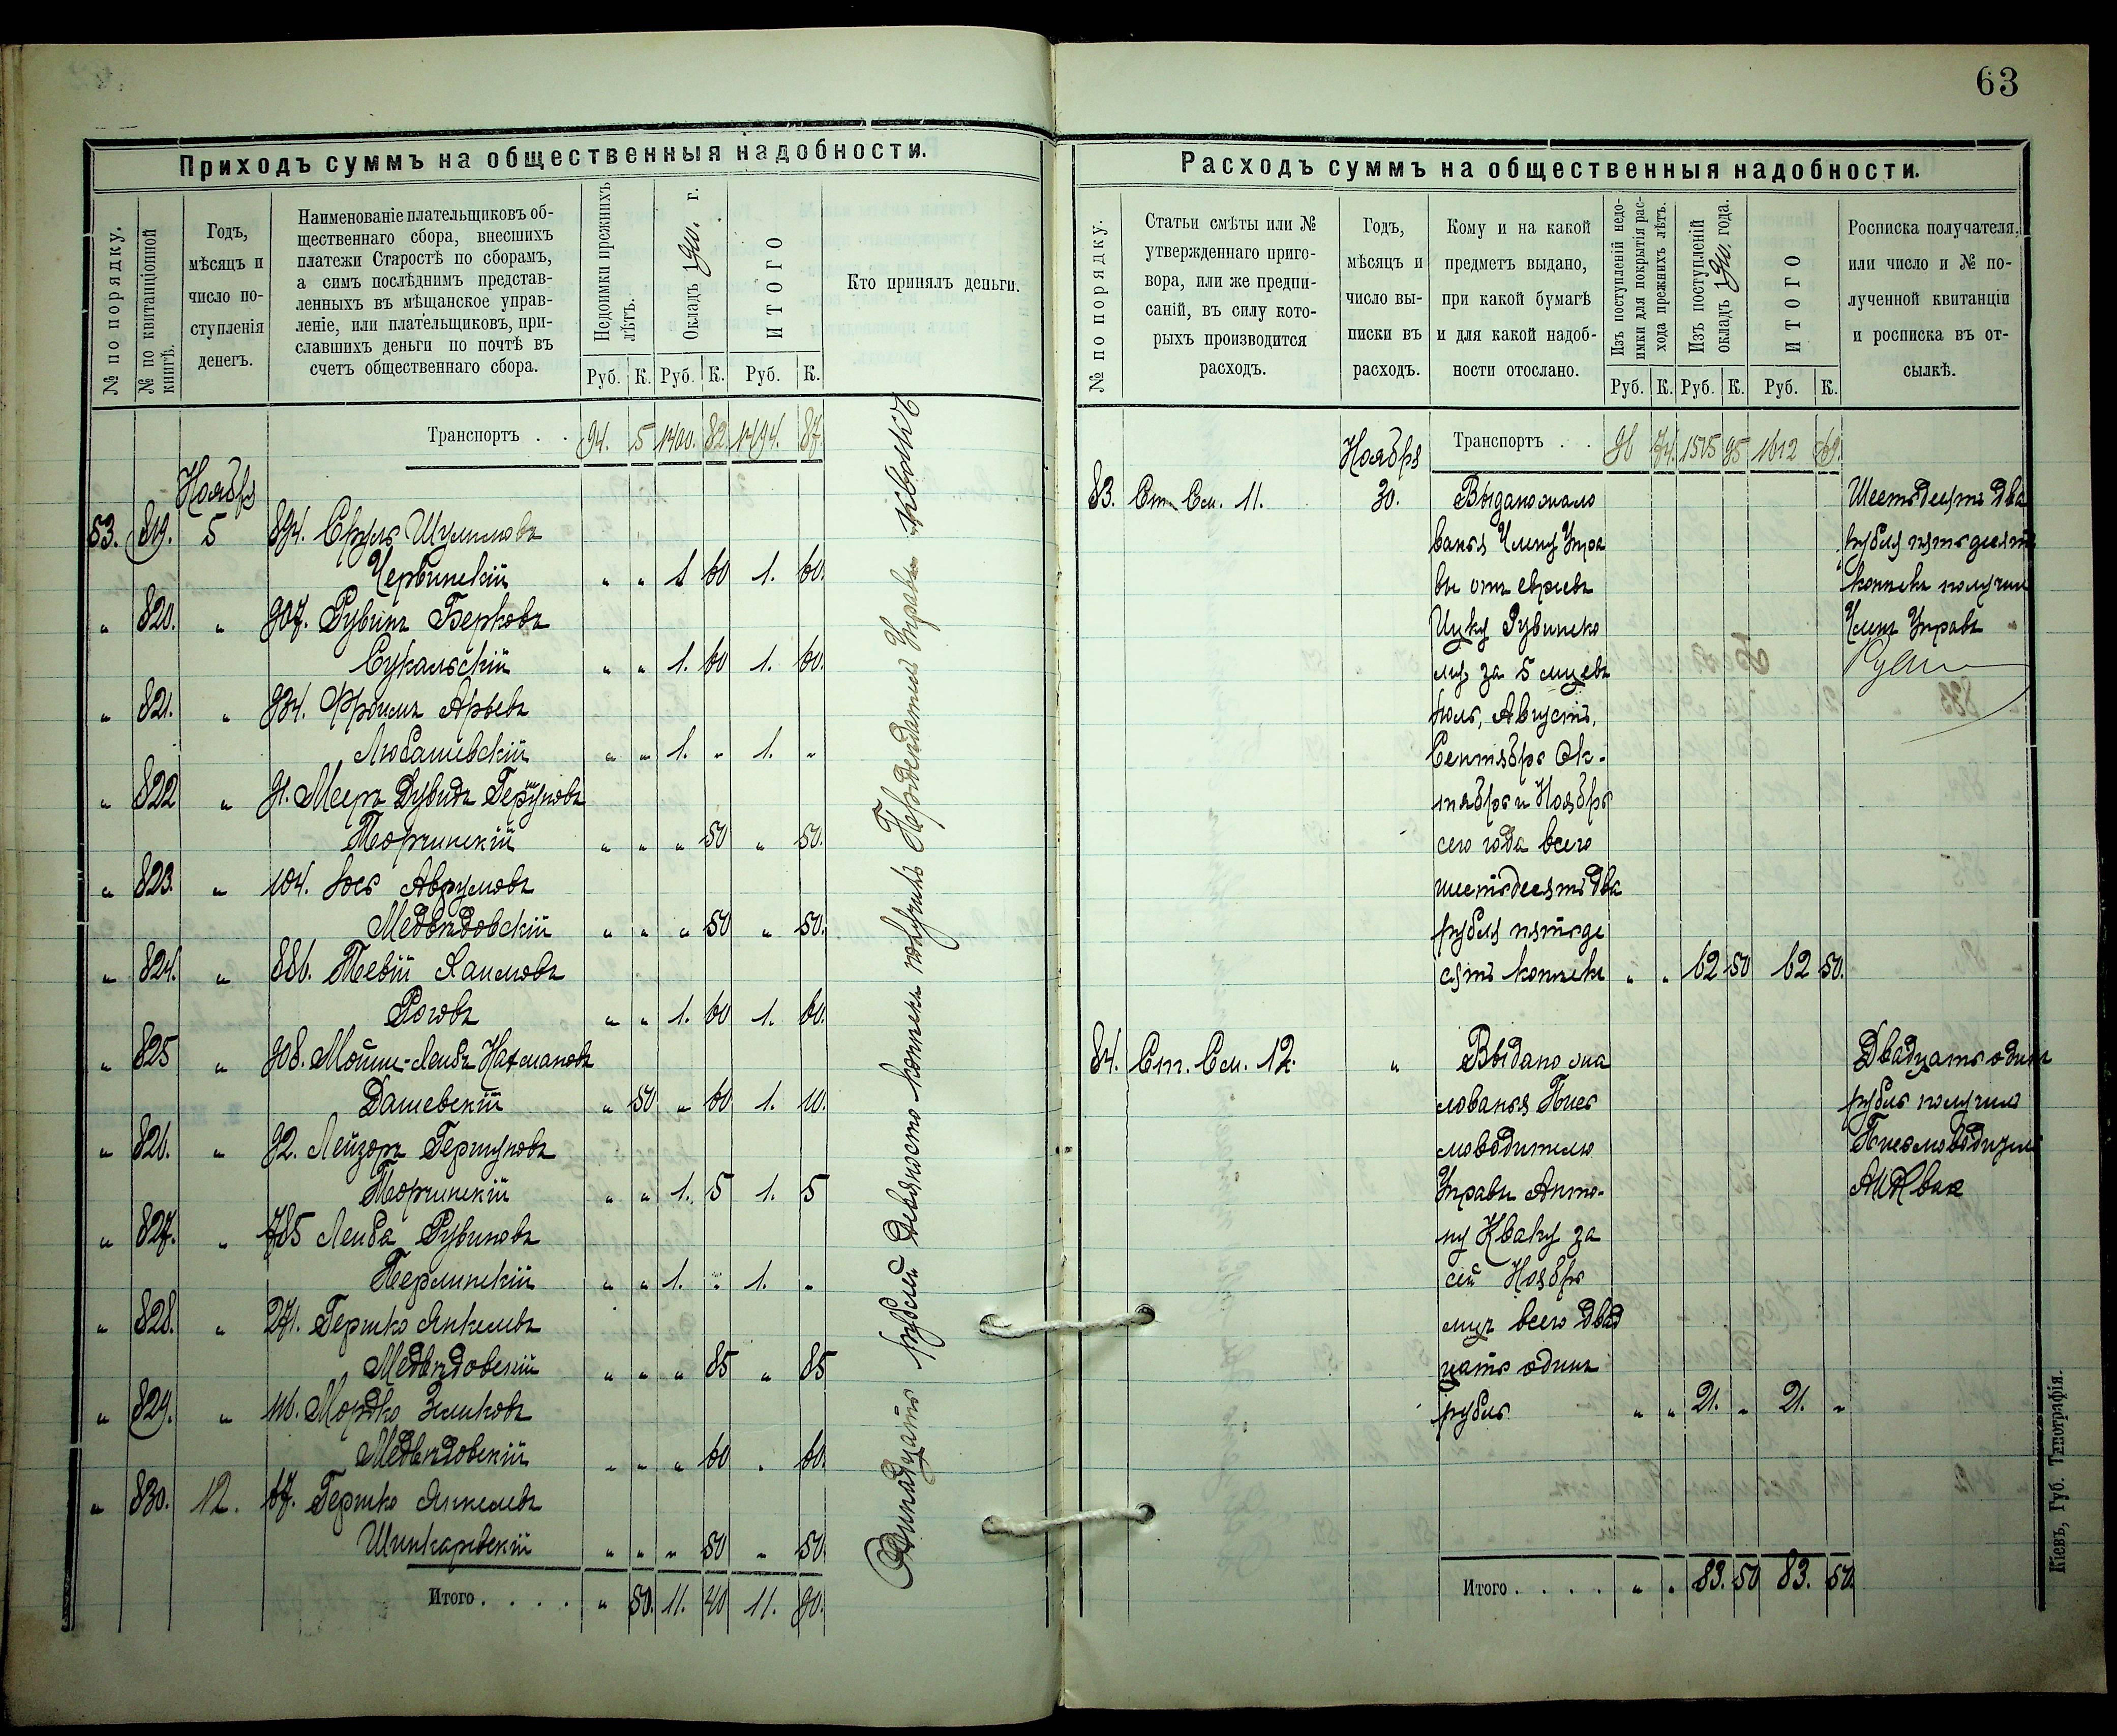 63
Приходъ суммъ на общественныя надобности.
№ по порядку.
№ по квитанціонной книгѣ.
Годъ,
мѣсяцъ и
число по-
ступленія
денегъ.
Наименованіе плательщиковъ об-
щественнаго сбора, внесшихъ
платежи Старостѣ по сборамъ,
а симъ послѣднимъ представ-
ленныхъ въ мѣщанское управ-
леніе, или плательщиковъ, при-
славшихъ деньги по почтѣ въ
счетъ общественнаго сбора.
Недоимки прежнихъ
лѣтъ.
Окладъ 1910. г.
ИТОГО
Кто принялъ деньги.
Руб. К. Руб. К. Руб. К.
Транспортъ . . 94. 5 1400. 82 1494. 87
Ноябрь
53. 819. 5 894. Сруль Шулимовъ
Червинскій " " 1 60 1. 60.
" 820. " 907. Рувинъ Берковъ
Сукальскій " " 1. 60 1. 60.
" 821. " 934. Фроимъ Арьевъ
Любашевскій " " 1. " 1. "
" 822 " 91. Мееръ Дувидъ Гершуновъ
Торчинскій " " " 50 " 50.
" 823. " 104. Іось Аврумовъ
Медвѣдовскій " " " 50 " 50.
" 824. " 886. Тевій Хаимовъ
Роговъ " " 1. 60 1. 60.
" 825 " 908. Мошко-Лейбъ Нахмановъ
Дашевскій " 50 " 60 1. 10.
" 826. " 92. Лейзоръ Гершуновъ
Торчинскій " " 1. 5 1. 5
" 827. " 785 Лейба Рувиновъ
Перлинскій " " 1. " 1. "
" 828. " 271. Гершко Янкелевъ
Медвѣдовскій " " " 85 " 85
" 829. " 116. Мордко Зельковъ
Медвѣдовскій " " " 60 " 60.
" 830. 12. 67. Гершко Янкелевъ
Шинкаревскій " " " 50 " 50.
Итого . . . . " 50. 11. 40 11. 90.
Одинадцать рублей девяносто копѣекъ получилъ Управы
Расходъ суммъ на общественныя надобности.
№ по порядку.
Статьи смѣты или №
утвержденнаго приго-
вора, или же предпи-
саній, въ силу кото-
рыхъ производится
расходъ.
Годъ,
мѣсяцъ и
число вы-
писки въ
расходъ.
Кому и на какой
предметъ выдано,
при какой бумагѣ
и для какой надоб-
ности отослано.
Изъ поступленій недо-
имки для покрытія рас-
хода прежнихъ лѣтъ.
Изъ поступленій
окладъ 1910. года.
ИТОГО
Росписка получателя,
или число и № по-
лученной квитанціи
и росписка въ от-
сылкѣ.
Руб. К. Руб. К. Руб. К.
Транспортъ . . 96 74. 1515 95 1612 69.
Ноябрь
83. Ст. См. 11. 30. Выдано жало
ванья Члену Упра
вы отъ евреевъ
Ицку Рувинско
му за 5 мцевъ
Іюль, Августъ,
Сентябрь Ок-
тябрь и Ноябрь
сего года всего
шестьдесятъ два
рубля пятьде
сятъ копѣекъ " " 62 50 62 50.
Шестьдесятъ два
рубля пятьдесятъ
копѣекъ получилъ
Членъ Управы
84. Ст. См. 12. " Выдано жа
лованья Пись
моводителю
Управы Анто-
ну Кваку за
сей Ноябрь
мцъ всего двад
цать одинъ
рубль " " 21. " 21. "
Двадцать одинъ
рубль получилъ
Письмоводитель
А Квак
Итого . . . . " " 83. 50 83. 50.
Кіевъ, Губ. Типографія.